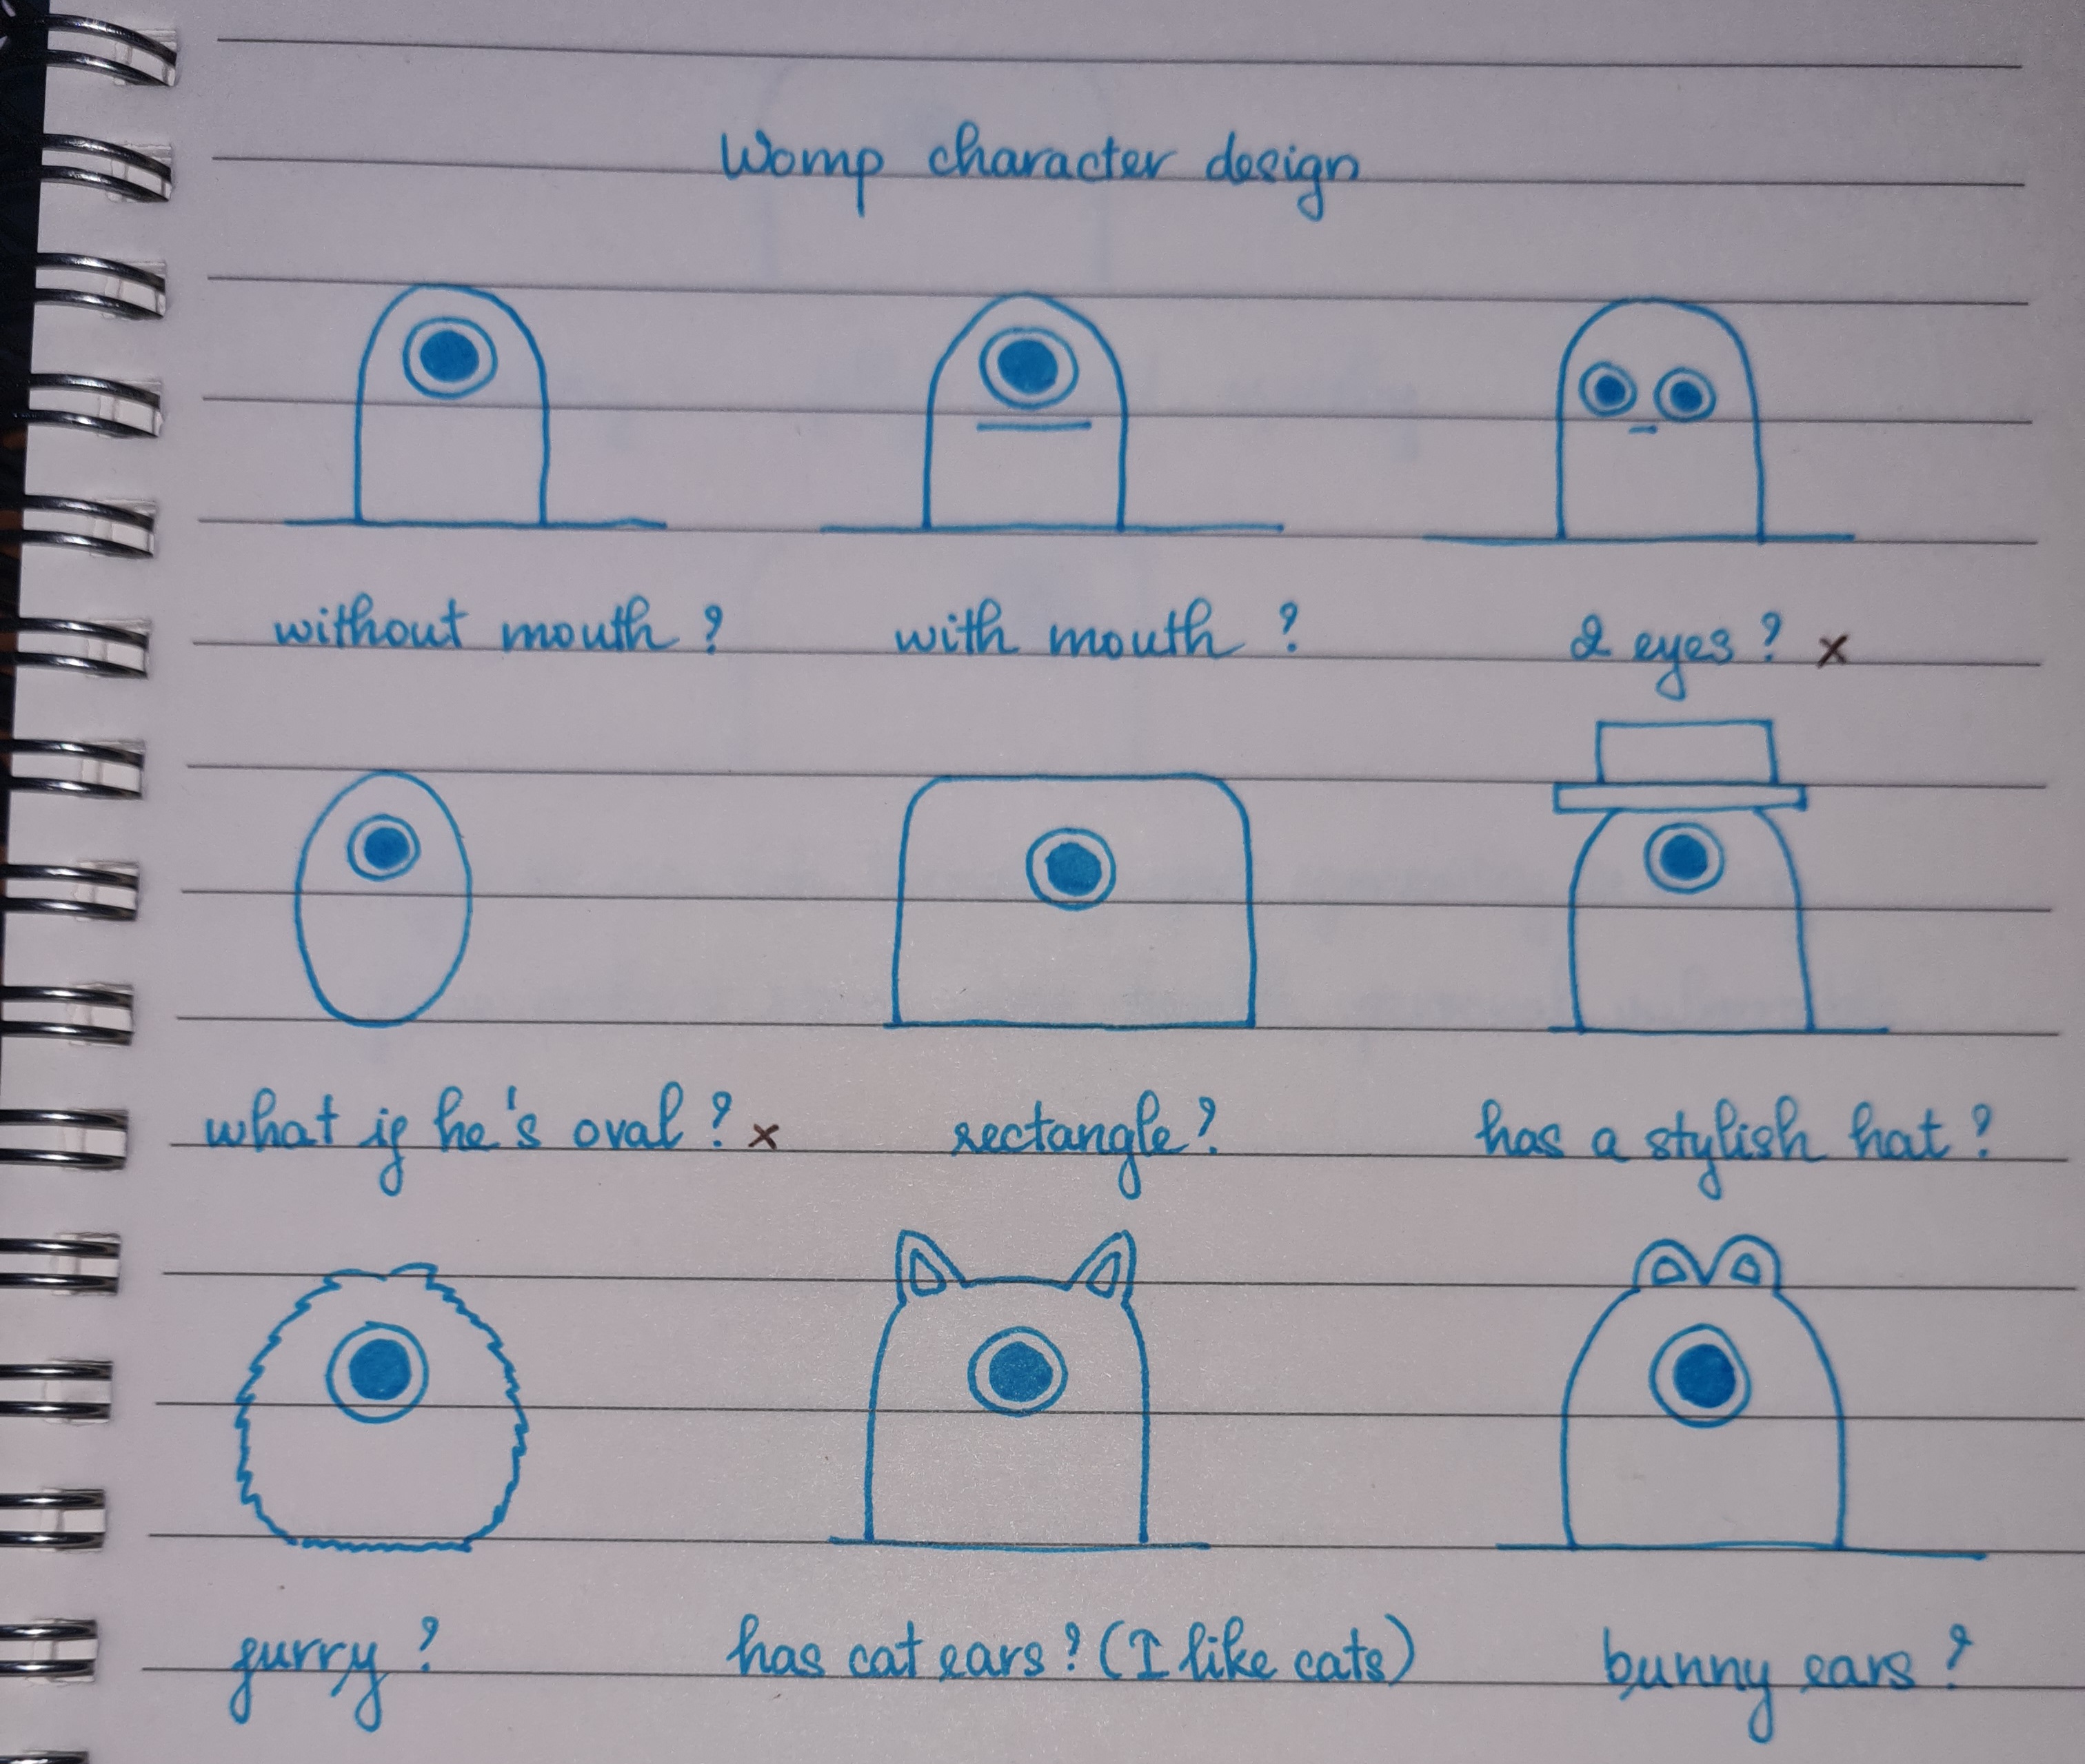 Womp character design
without mouth ? with mouth ? 2 eyes ? x
what if he's oval ? x rectangle ? has a stylish hat ?
furry ? has cat ears ? (I like cats) bunny ears ?